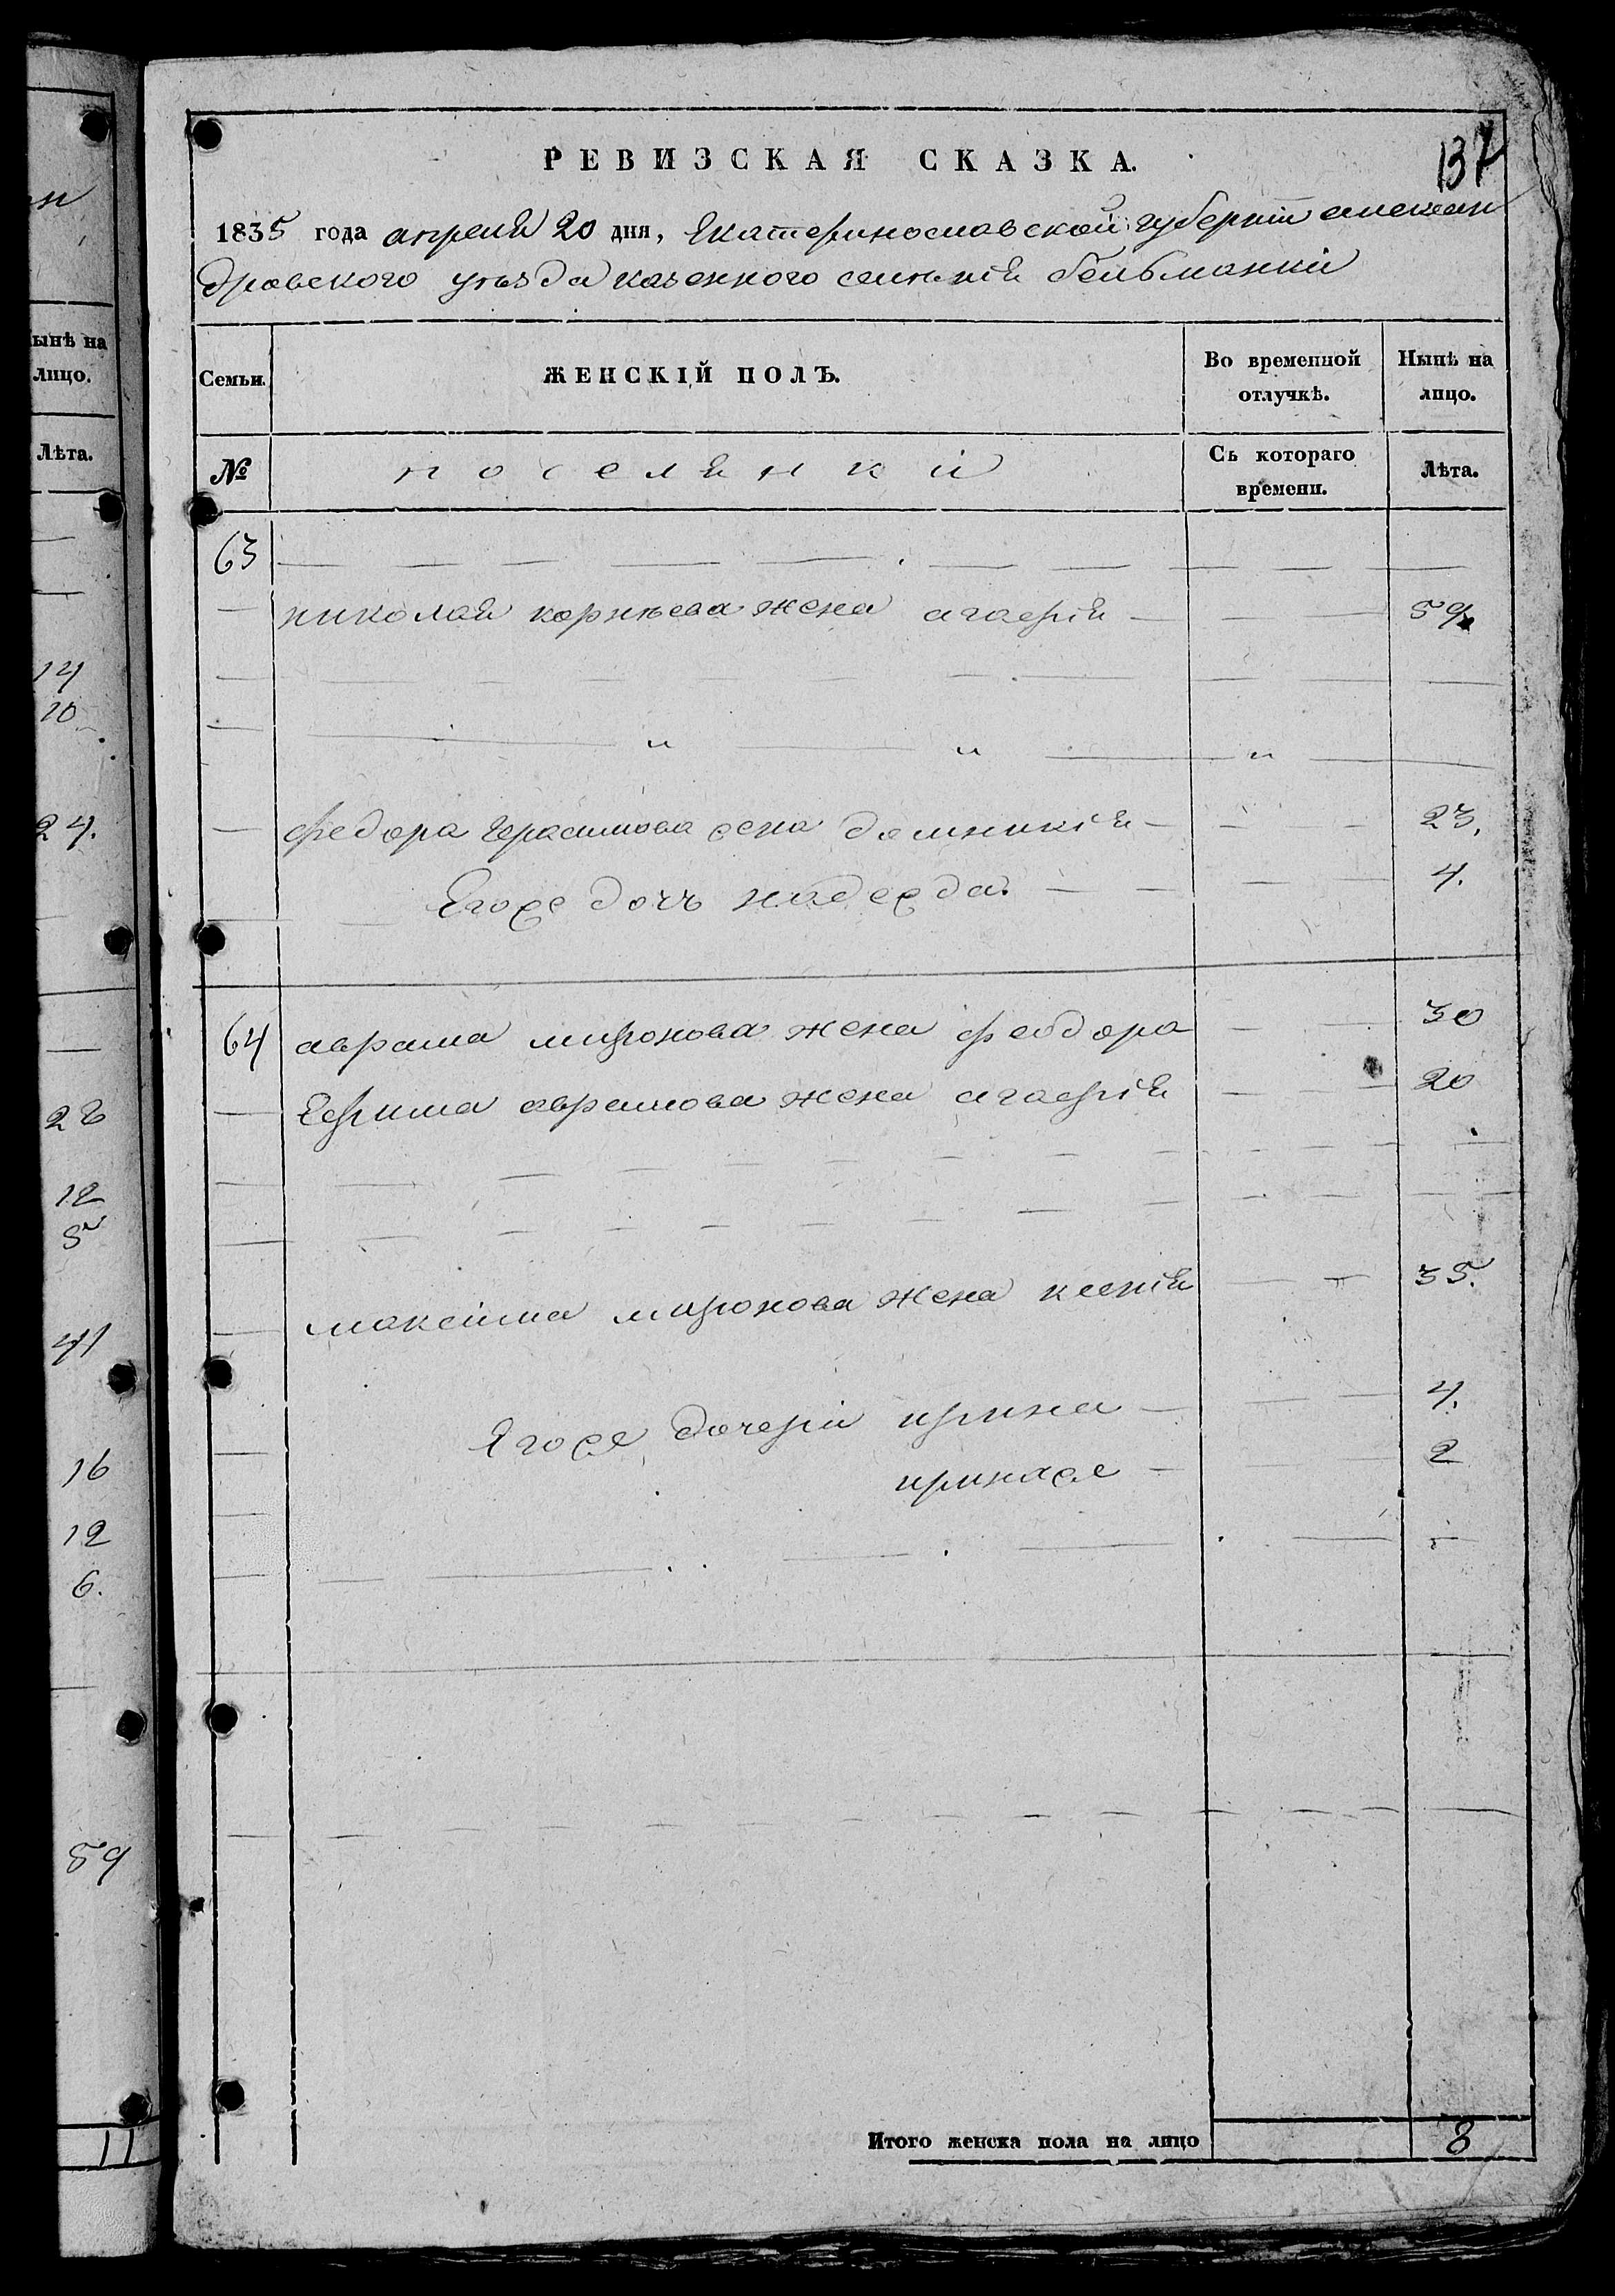 ын
ынѣ на
лицо.
Лѣта.
14
10
24.
28
12
5
41
16
12
6.
59
11
РЕВИЗСКАЯ СКАЗКА.
137
1835 года апреля 20 дня, Екатеринославской губернїи алексан
дровского уѣзда казенного селенїя бельманки
Семьи.
ЖЕНСКІЙ ПОЛЪ.
Во временной отлучкѣ.
Нынѣ на лицо.
№
поселянки
Съ котораго времени.
Лѣта.
63
николая корнѣева жена агафїя — 59.
федора Герасимова жена домникїя — 23.
Егоже дочъ надежда. — 4.
64 аврама миронова жена феодора — 30
Ефима аврамова жена агафїя — 20
максїма миронова жена ксенїя — 35.
Егоже дочери ирина — 4.
иринаже — 2
Итого женска пола на лицо 8